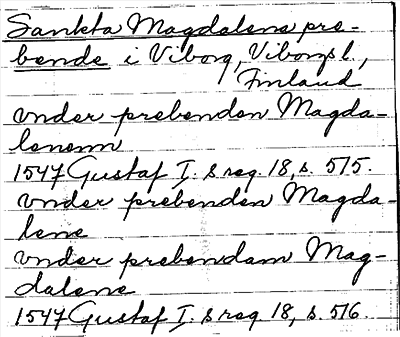 Sankta Magdalena pre-
bende i Viborg, Viborgs l.,
Finland
vnder prebenden Magda-
lenenn
1547 Gustaf I:s reg. 18, s. 515.
vnder prebenden Magda-
lene
vnder prebendam Mag-
dalene
1547 Gustaf I:s reg 18, s. 516.